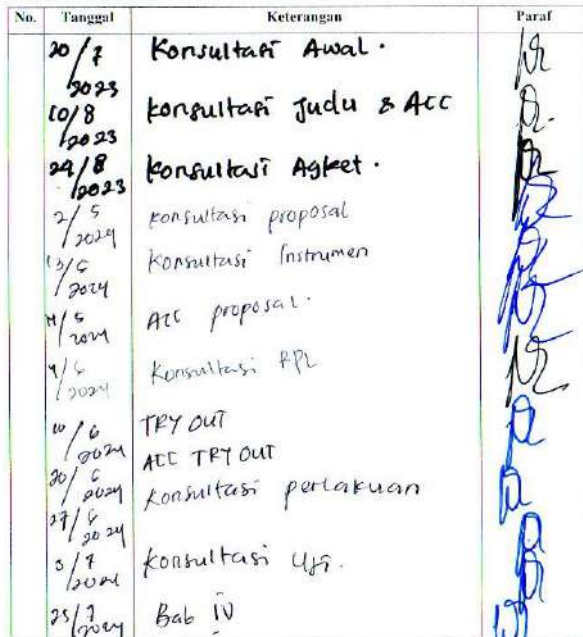 No. Tanggal Keterangan Paraf
20/7 2023 Konsultasi Awal.
10/8 2023 Konsultasi Judu & ACC
24/8 2023 Konsultasi Agket.
2/5 2024 Konsultasi proposal
13/5 2024 Konsultasi Instrumen
/5 2024 ACC proposal.
2024 Konsultasi RPL
10/6 2024 TRY OUT
20/6 2024 ACC TRY OUT
27/6 2024 Konsultasi perlakuan
3/7 2024 Konsultasi Uji.
25/7 2024 Bab IV